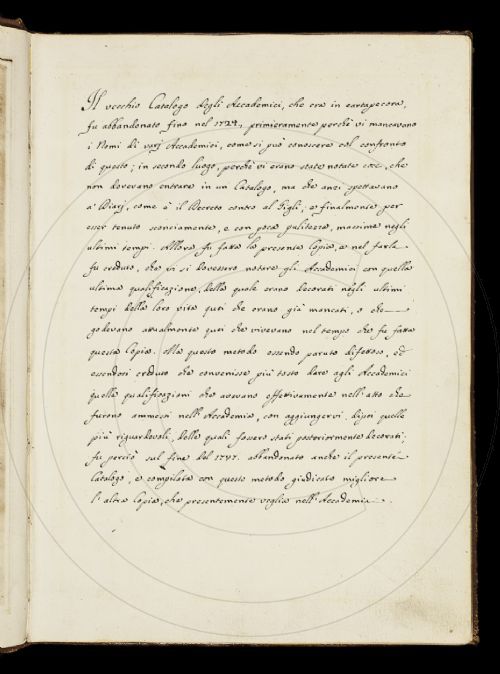 Il vecchio Catalogo degli Accademici, che era in cartapecora,
fu abbandonato fino nel 1724, primieramente perchè vi mancavano
i Nomi di varj Accademici, come si può conoscere col confronto
di questo; in secondo luogo, perchè vi erano state notate cose, che
non dovevano entrare in un Catalogo, ma che anzi spettavano
a' Diarj, come è il Decreto contro al Gigli; e finalmente per
esser tenuto sconciamente, e con poca pulitezza, massime negli
ultimi tempi. Allora fu fatta la presente Copia, e nel farla
fu creduto, che vi si dovessero notare gli Accademici con quella
ultima qualificazione, della quale erano decorati negli ultimi
tempi della loro vita quei che erano già mancati, o che
godevano attualmente quei che vivevano nel tempo che fu fatta
questa Copia. Ma questo metodo essendo paruto difettoso, ed
essendosi creduto che convenisse più tosto dare agli Accademici
quelle qualificazioni che avevano effettivamente nell'atto che
furono ammessi nell'Accademia, con aggiungervi dipoi quelle
più riguardevoli, delle quali fossero stati posteriormente decorati;
fu perciò sul fine del 1747. abbandonato anche il presente
Catalogo, e compilata con questo metodo giudicato migliore
l'altra Copia, che presentemente veglia nell'Accademia.